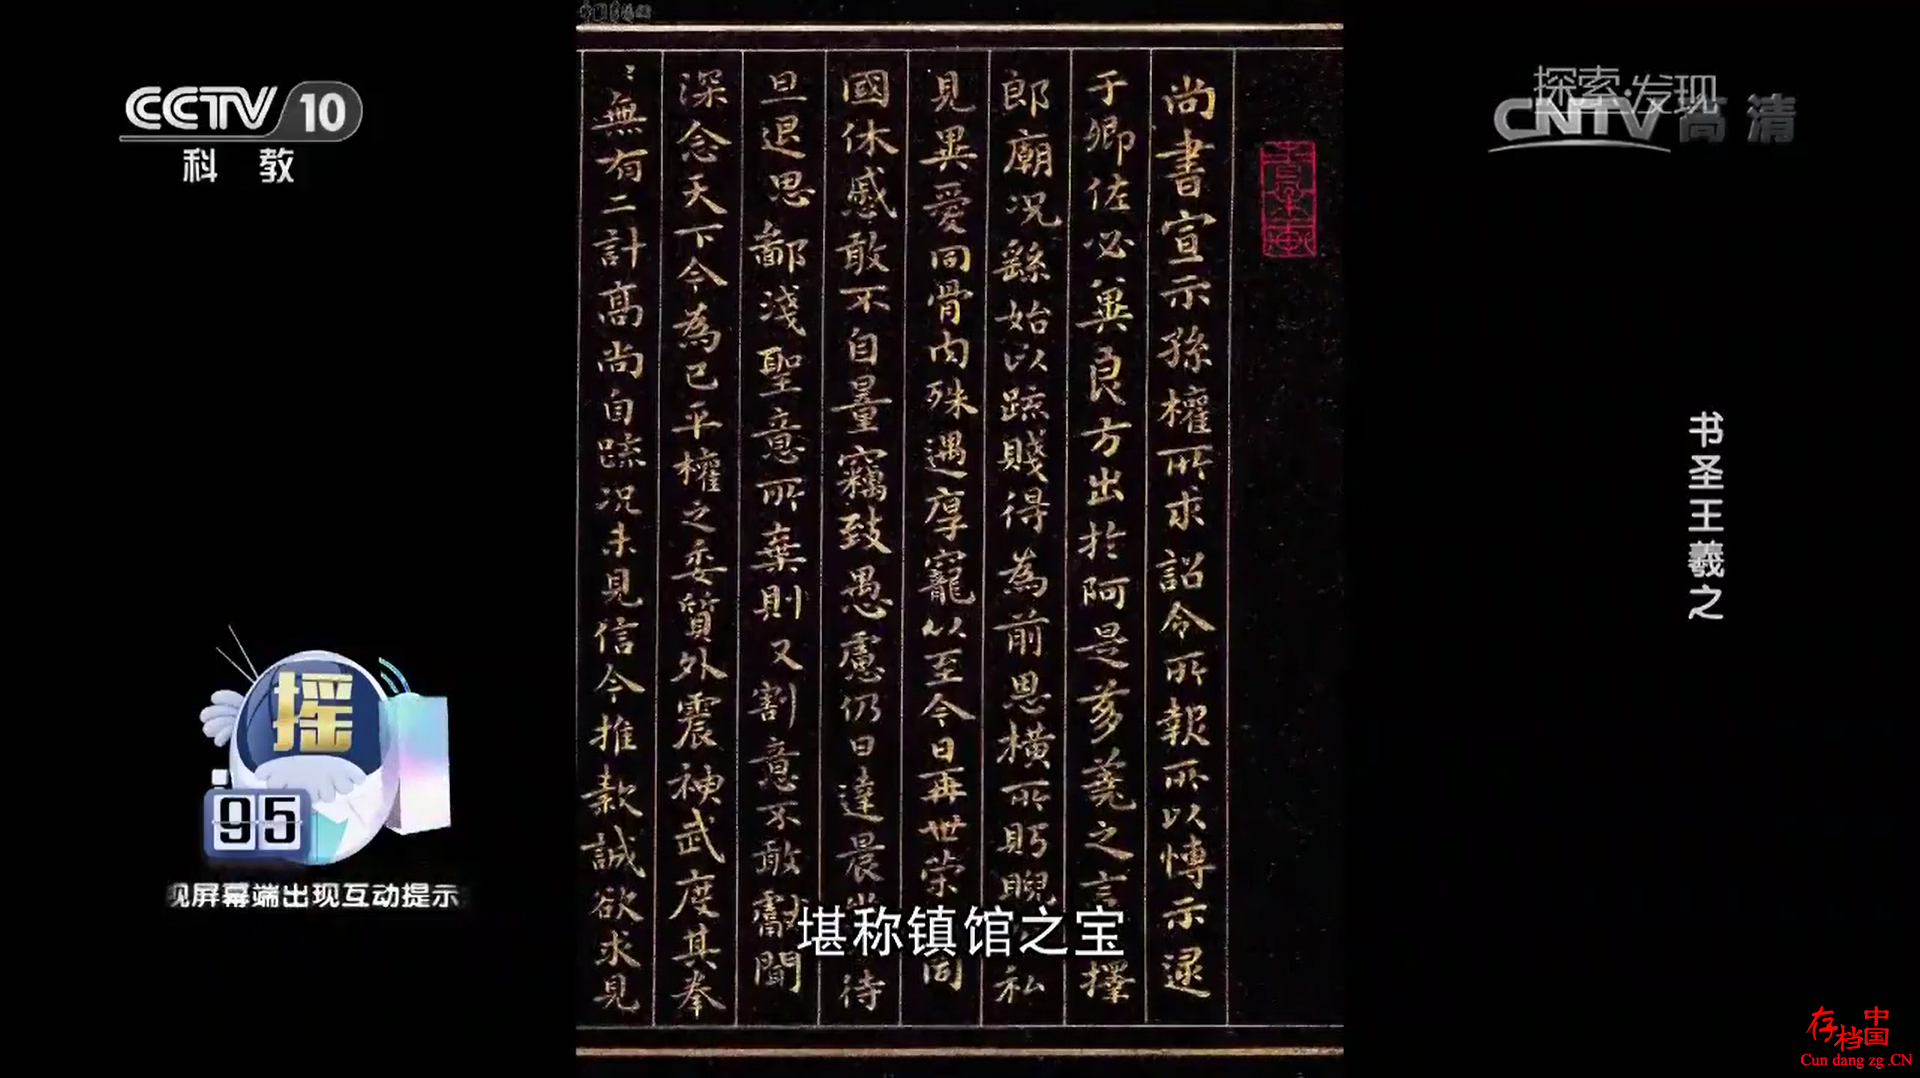 CCTV 10
科 教
探索·发现
CNTV 高清
书圣王羲之
尚書宣示孫權所求詔令所報所以博示逮
于卿佐必冀良方出於阿是芻蕘之言 擇
郎廟況繇始以疏賤得為前恩橫所眄睨 私
見異愛同骨肉殊遇厚寵以至今日再世榮 同
國休慼敢不自量竊致愚慮仍日達晨 待
旦退思鄙淺聖意所棄則又割意不敢獻聞
深念天下今為已平權之委質外震神武度其拳
〻無有二計高尚自疏況未見信今推款誠欲求見
摇
95
现屏幕端出现互动提示
堪称镇馆之宝
存档中国
Cun dang zg .CN